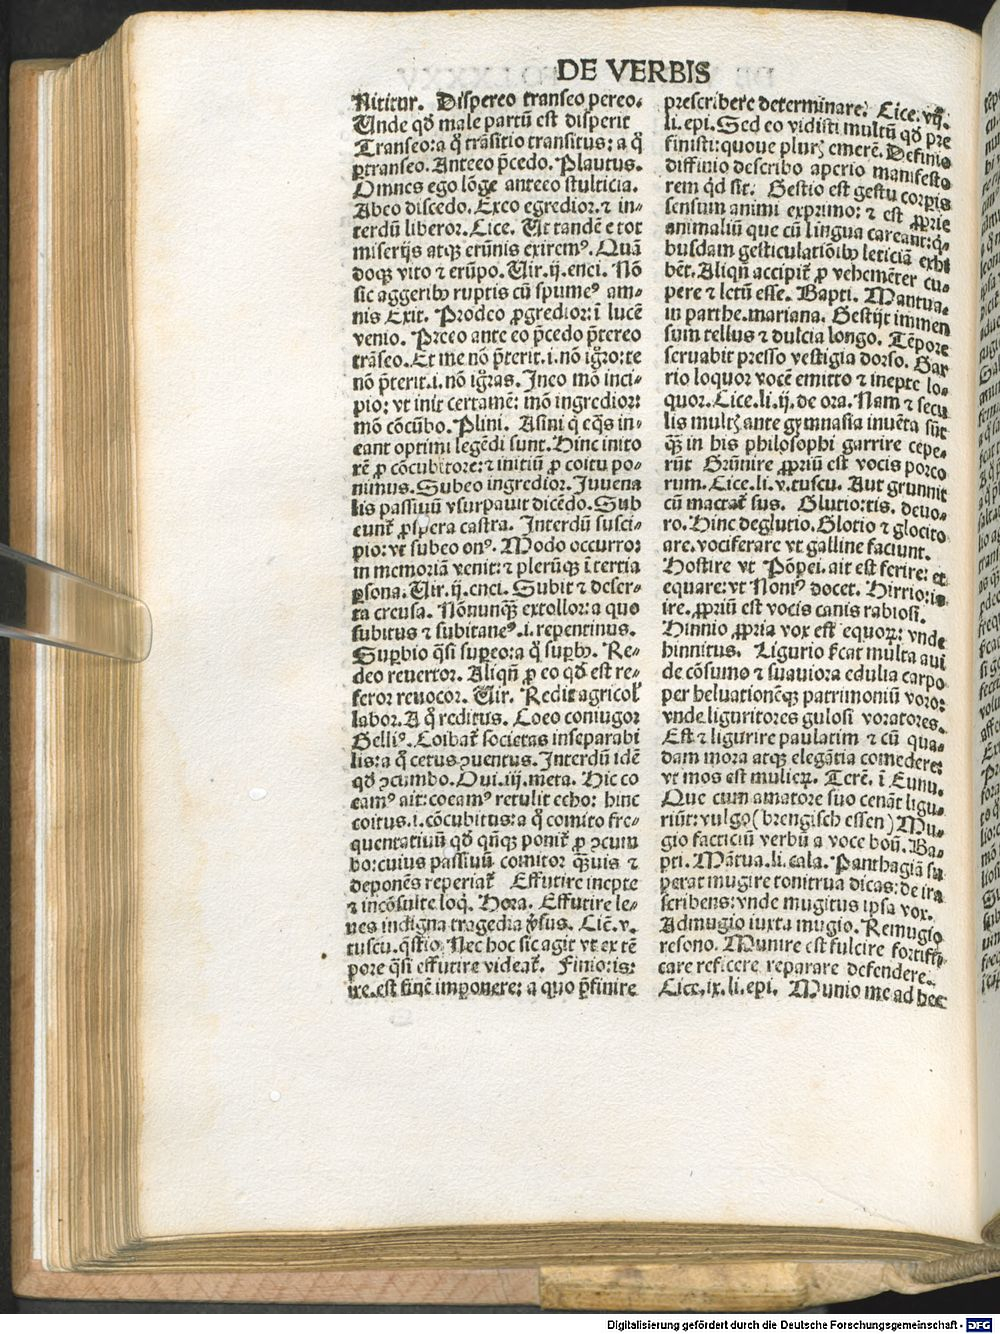 DE VERBIS
Nititur. Dispereo transeo pereo.
Unde qd̄ male partū est disperit
Transeo: a q̄ trāsitio transitus: a q̄
ꝑtranseo. Anteeo p̄cedo. Plautus.
Omnes ego lōge anteeo stulticia.
Abeo discedo. Exeo egredior. ⁊ in⸗
terdū liberor. Cice. Ut tandē e tot
miserijs atqꝫ erūnis exirem⁹. Quā
doqꝫ vito ⁊ erūpo. Uir. ij. enei. Nō
sic aggeribꝰ ruptis cū spume⁹ am⸗
nis Exit. Prodeo ꝓgredior: ī lucē
venio. Preeo ante eo p̄cedo p̄tereo
trāseo. Et me nō p̄terit. i. nō iḡro: te
nō p̄terit. i. nō iḡras. Ineo mō inci⸗
pio: vt init certamē: mō ingredior:
mō cōcūbo. Plini. Asini q̄ eq̄s in⸗
eant optimi legēdi sunt. Hinc inito
rē ꝓ cōcubitore: ⁊ initiū ꝓ coitu po⸗
nimus. Subeo ingredior. Juvena
lis passiuū vsurpauit dicēdo. Sub
eunt̄ ꝓspera castra. Interdū susci⸗
pio: vt subeo on⁹. Modo occurro:
in memoriā venit: ⁊ plerūqꝫ ī tertia
ꝑsona. Uir. ij. enei. Subit ⁊ deser⸗
ta creusa. Nōnunqꝫ extollor: a quo
subitus ⁊ subitane⁹. i. repentinus.
Suꝑbio q̄si suꝑeo: a q̄ suꝑbꝰ. Re⸗
deo reuertor. Aliqn̄ ꝓ eo qd̄ est re⸗
feror reuocor. Uir. Redit agricol̓
labor. A q̄ reditus. Coeo coniugor
Belli⁹. Coibat̄ societas inseparabi
lis: a q̄ cetus ꝯuentus. Interdū idē
qd̄ ꝯcumbo. Oui. iij. meta. Hic co
eam⁹ ait: coeam⁹ retulit echo: hinc
coitus. i. cōcubitus: a q̄ comito fre⸗
quentatiuū qd̄ qn̄qꝫ ponit̄ ꝓ ꝯcum
bo: cuius passiuū comitor qꝫuis ⁊
deponēs reperiat̄ Effutire inepte
⁊ incōsulte loq̄. Hora. Effutire le⸗
ues indigna tragedia v̓sus. Ciē. v.
tuscu. q̄stio. Nec hoc sic agit vt ex tē
pore q̄si effutire videat̄. Finio: is:
ire. est finē imponere: a quo p̄finire
prescribere determinare. Cice. vij.
li. epi. Sed eo vidisti multū qd̄ pre
finisti: quoue plurꝫ emerē. Definio
diffinio describo aperio manifesto
rem q̄d sit. Gestio est gestu corpis
sensum animi exprimo: ⁊ est ꝓprie
animaliū que cū lingua careant: q̄⸗
busdam gesticulatiōibꝰ leticiā exhi
bēt. Aliqn̄ accipit̄ ꝓ vehemēter cu⸗
pere ⁊ letū esse. Bapti. Mantua.
in parthe. mariana. Gestijt immen
sum tellus ⁊ dulcia longo. Tēpore
seruabit presso vestigia dorso. Gar
rio loquor vocē emitto ⁊ inepte lo⸗
quor. Cice. li. ij. de ora. Nam ⁊ secu
lis multꝫ ante gymnasia inuēta sūt
qꝫ in his philosophi garrire cepe⸗
rūt Grūnire ꝓpriū est vocis porco
rum. Cice. li. v. tuscu. Aut grunnit
cū mactat̄ sus. Glutio: tis. deuo⸗
ro. Hinc deglutio. Glotio ⁊ glocito
are. vociferare vt galline faciunt.
Hostire vt Pōpei. ait est ferire: et
equare: vt Noni⁹ docet. Hirrio: is
ire. ꝓpriū est vocis canis rabiosi.
Hinnio ꝓpria vox est equoꝝ: vnde
hinnitus. Ligurio s̓cat multa aui
de cōsumo ⁊ suauiora edulia carpo
per heluationēqꝫ patrimoniū voro:
vnde liguritores gulosi voratores.
Est ⁊ ligurire paulatim ⁊ cū qua⸗
dam mora atqꝫ elegātia comedere:
vt mos est mulieꝝ. Terē. ī Eunu.
Que cum amatore suo cenāt ligu⸗
riūt: vulgo (brengisch essen) Mu⸗
gio facticiū verbū a voce boū. Ba⸗
pti. Mātua. li. cala. Panthagiā su
perat mugire tonitrua dicas: de ira
scribens: vnde mugitus ipsa vox.
Admugio iuxta mugio. Remugio
resono. Munire est fulcire fortifi⸗
care reficere reparare defendere.
Cice. ix. li. epi. Munio me ad hec
Digitalisierung gefördert durch die Deutsche Forschungsgemeinschaft - DFG